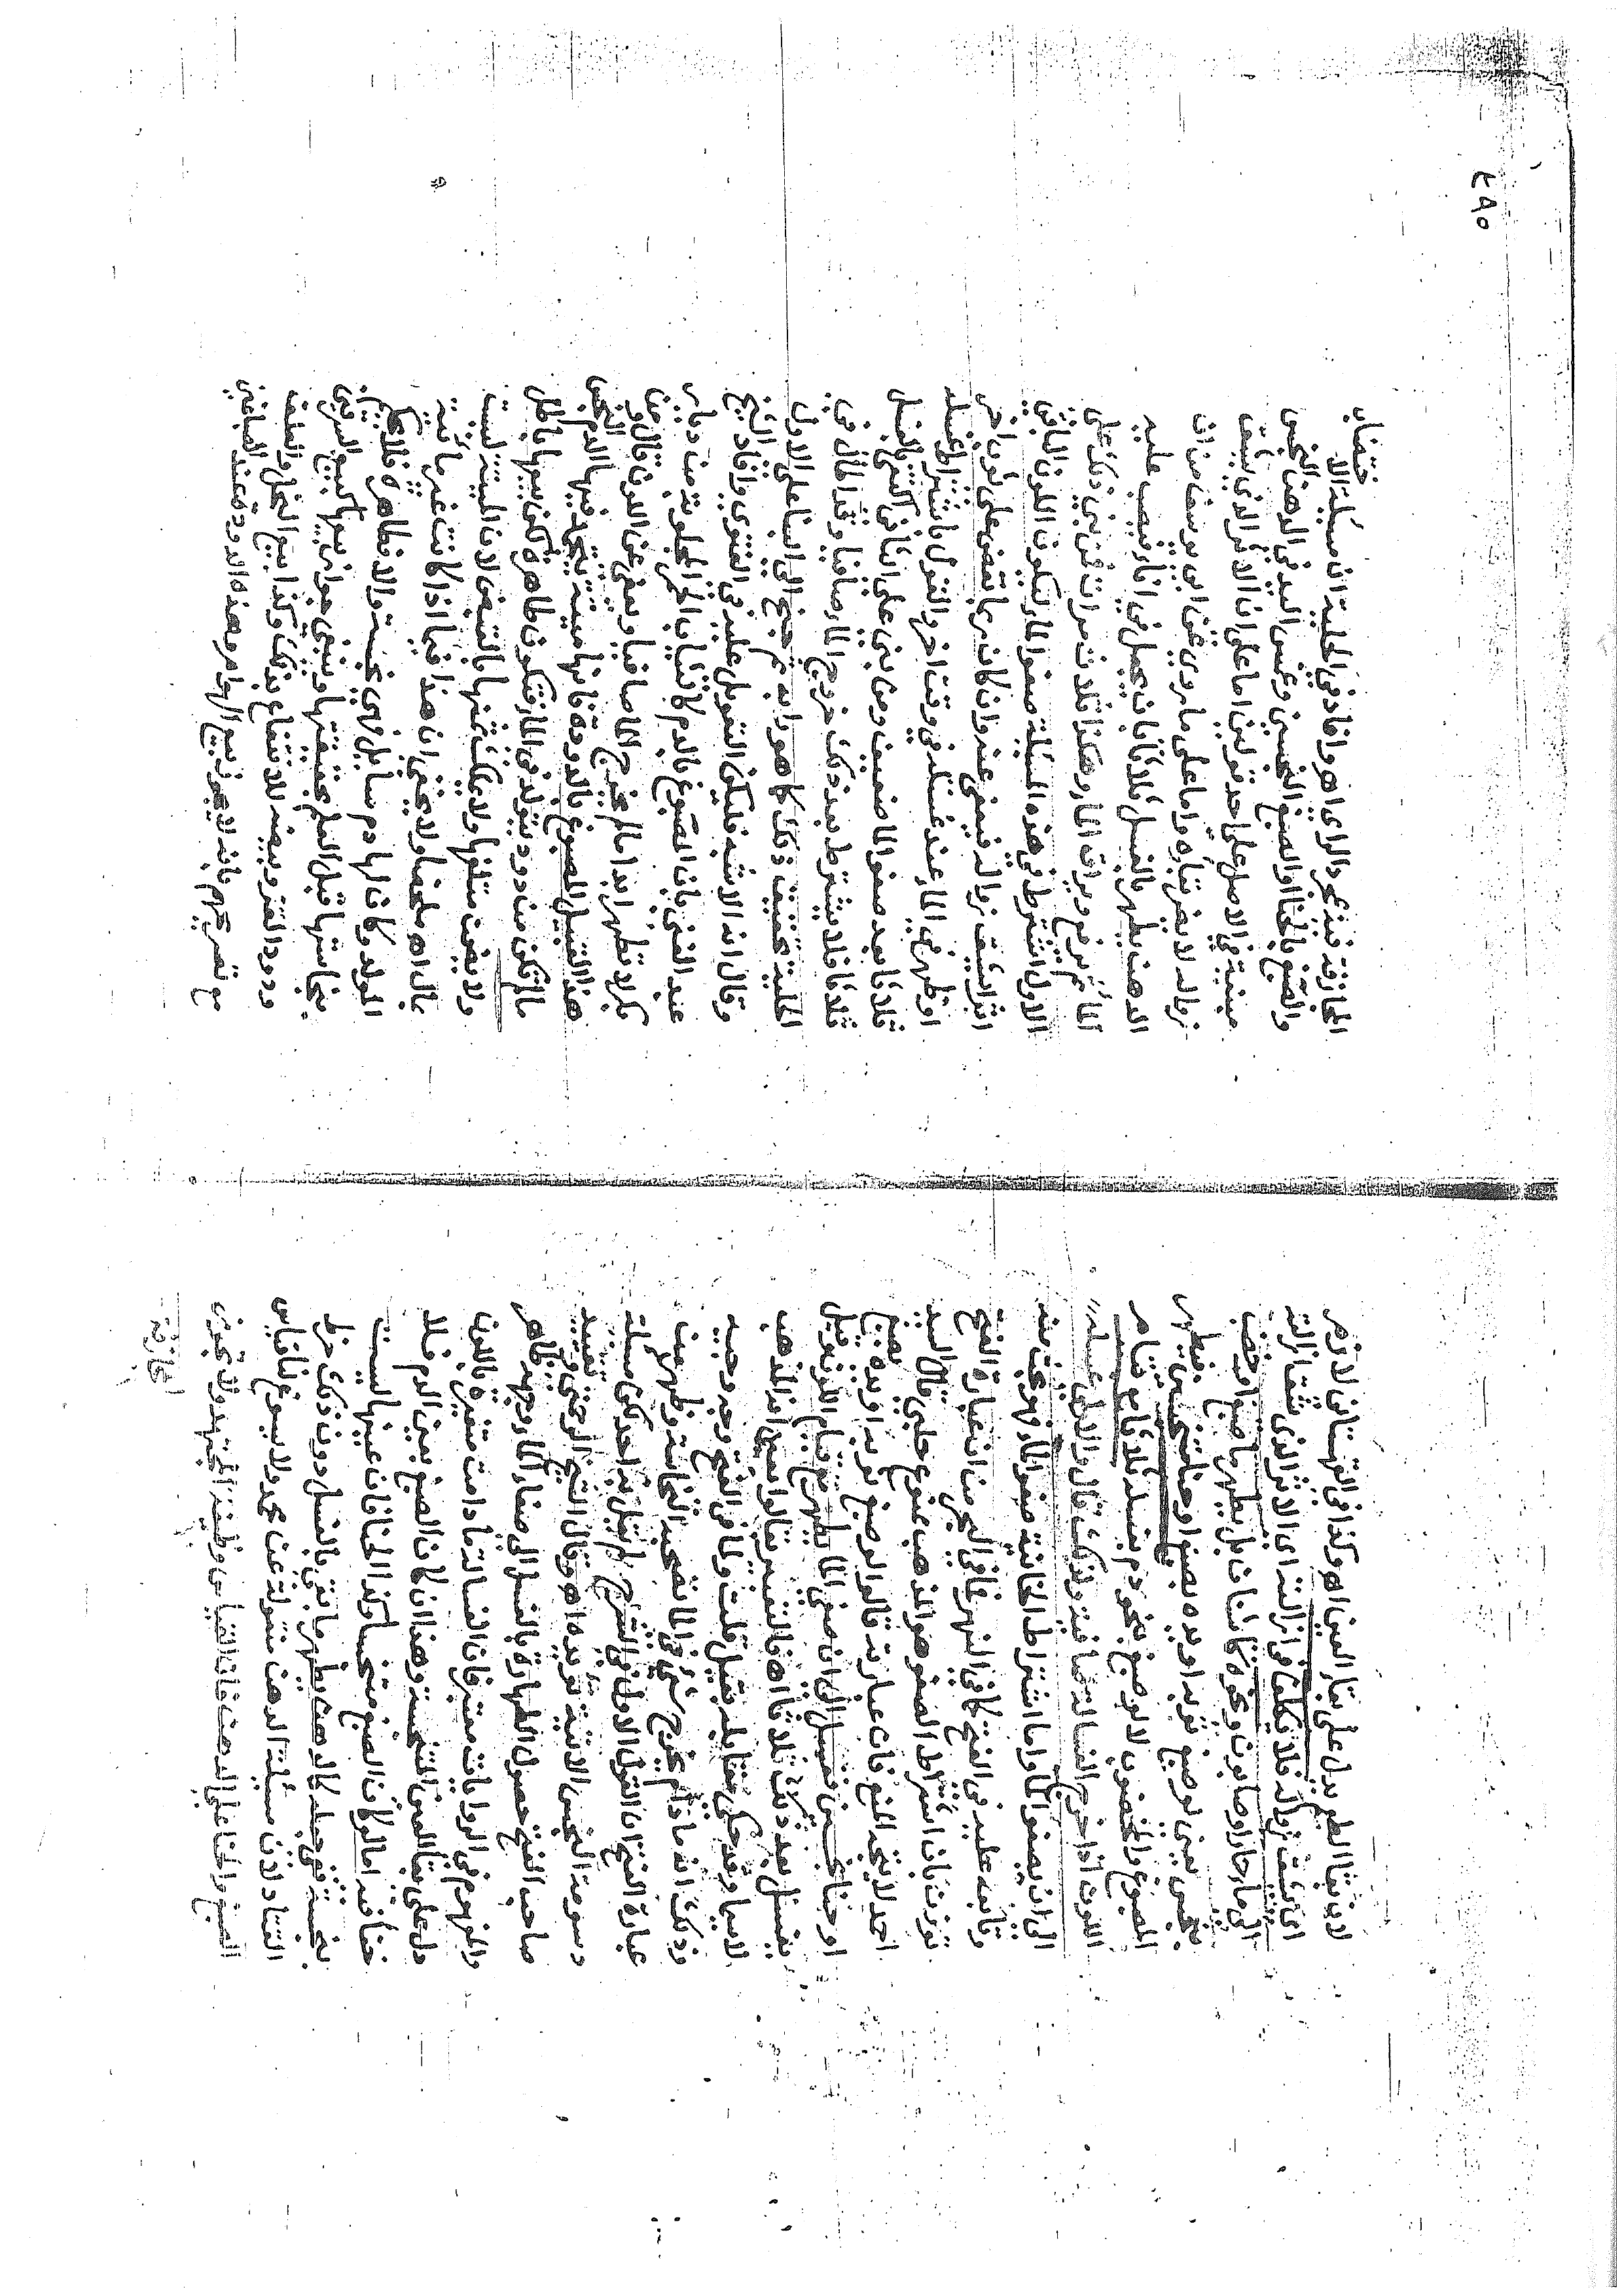 لان بقا الطعم يدل على بقاء العين اهـ وكذا في القهستاني لازم
اي يشق زواله فلا يكلف في ازالته اي الاثر الذي شقت ازالته
الى ماء حار او صابون ونحوه كاشنان بل يطهر ما صبغ او خضب
بنجس يعني لو صبغ ثوبه او يده بصبغ او حناء متنجسين فيطهر
المصبوغ والمخضوب لا لو صبغ بنحو دم بغسله ثلاثا مع بقاء
اللون اذا خرج الغسالة صافية ولذلك قال والاولى غسله
الى ان يصفو الماء واما اشتراط الخانية صفو الماء فهو بحث منه
وتابعه عليه في الفتح كما في النهر فما في البحر من ان عبارة الفتح
تؤذن بان اشتراط الصفو هو المذهب ممنوع حلبي قال السيد
احمد لا يتجه المنع فان عبارته قالوا لو صبغ ثوبه او يده بصبغ
او حناء نجسين فغسل الى ان صفى الماء يطهر مع قيام اللون وقيل
يغسل بعد ذلك ثلاثا اهـ فالتعبير بقالوا يعين انه المذهب
لاسيما وقد حكى مقابله بقيل قلت ولما في الفتح وجه وجيه
وذلك انه ما دام يخرج شيء في الماء تصحبه النجاسة وظهر من
عبارة الفتح ان القول الاول في الشرح لم يقل به احد لكن مسئلة
دسومة النجس الاتية تؤيده اهـ وقال الشيخ الرحمتي وتقييد
صاحب الفتح حصول الطهارة بالغسل الى صفاء الماء وجهه ظاهر
والمفهوم من الروايات معتبر فان الغسالة ما دامت متغيرة باللون
دل على بقا العين المتنجسة وهذا ان كان الصبغ بعين الدم فلا
خفا فيه اما لو كان الصبغ متنجسا وكذا الحنا فان عينها ليست
بنجسة فهي جملة كالدهن يطهر ما بقي بالغسل دون ذلك خرط
القتاد لان مسئلة الدهن منقولة عن محمد ولا يسوغ لنا قياس
الصبغ والحنا على الدهن فان القياس وظيفة المجتهد ولا تجوز
المجازفة
٤٩٥
المجازفة فيه بمجرد الراي اهـ وافاد في الحلية ان مسئلة الاختضاب
والصبغ بالحنا او الصبغ النجسين وغمس اليد في الدهن النجس
مبنية في الاصل على احد قولين اما على ان الاثر الذي يشق
زواله لا يضر بقاؤه واما على ما روي عن ابي يوسف من ان
الدهن يطهر بالغسل ثلاثا بان يجعل في اناء فيصب عليه
الماء ثم يرفع ويراق الماء وهكذا ثلاث مرات فمن بنى ذلك على
الاول اشترط في هذه المسئلة صفو الماء ليكون اللون الباقي
اثرا شق زواله فيعفى عنه وان كان ربما نفض على ثوب اخر
او ظهر في الماء عند غسله في وقت اخر والقول باشتراط غسله
ثلاثا بعد صفو الماء ضعيف ومن بنى على الثاني اكتفى بالغسل
ثلاثا فلا يشترط بعد ذلك خروج الماء صافيا وقد اطال في
الحلية تحقيق ذلك كما هو دابه ثم جنح الى البنا على الاول
وقال انه الاشبه فليكن التعويل عليه في الفتوى وافاد الشيخ
عبد الغني بان المصبوغ بالدم كالثياب الحمر المجلوبة من ديار
بكر لا تطهر ابدا ما لم يخرج الماء صافيا ويعفى عن اللون قال ومن
هذا القبيل المصبوغ بالدودة فانها ميتة يتجمد فيها الدم النجس
ما لم تكن من دود يتولد في الماء فتكون طاهرة لكن بيعها باطل
ولا يضمن متلفها ولا يملك ثمنها بالقبض لان الميتة ليست
بمال اهـ ملخصا ولا يخفى ان هذا فيما اذا كانت غير مائية
المولد وكان لها دم سايل فهي نجسة والا فطاهرة فلا يحكم
بنجاستها قبل العلم بحقيقتها وينبغي جواز بيعها كبيع السرقين
ودود القز وبيضه للانتفاع بذلك وكذا بيع النحل والعلق
مع تصريحهم بانه لا يجوز بيع الهوام وهذه الدودة عند الصباغين